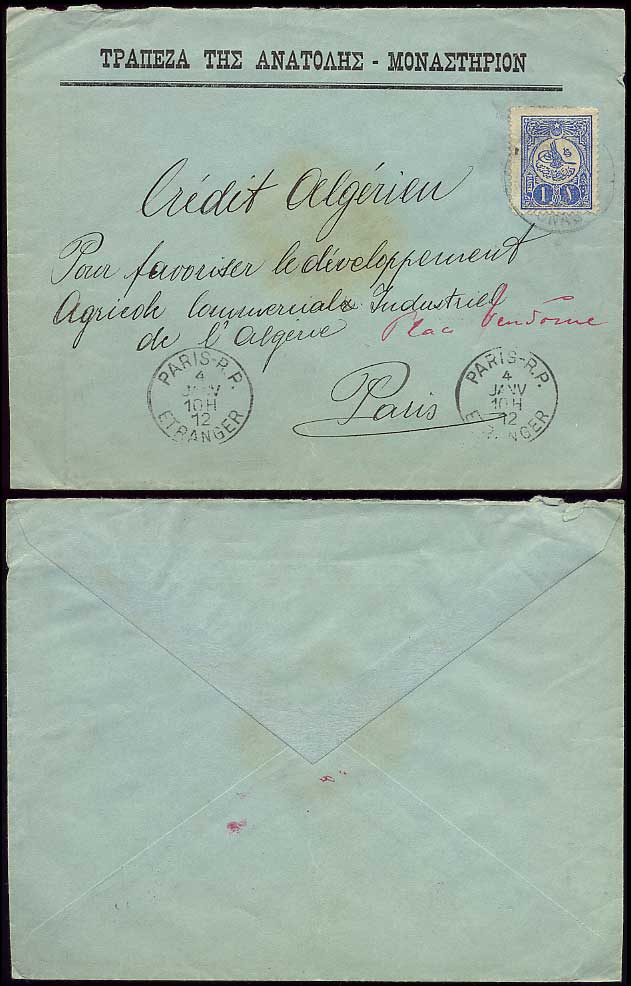 ΤΡΑΠΕΖΑ ΤΗΣ ΑΝΑΤΟΛΗΣ - ΜΟΝΑΣΤΗΡΙΟΝ
1 ١
Crédit Algérien
Pour favoriser le développement
Agricole Commerciale Industriel
de l'Algérie Place Vendôme
Paris
PARIS-R.P.
4
JANV
10H
12
ETRANGER
PARIS-R.P.
4
JANV
10H
12
ETRANGER